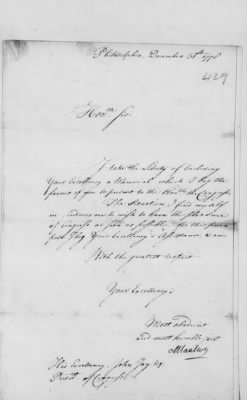 Philadelphia, December 30th 1778
429
Honble Sir
I take the Liberty of inclosing
Your Excellency a Memorial which I beg the
favour of you to present to the Honble the Congress.
The Situation I find myself
in, induces me to wish to know the pleasure
of Congress as soon as possible, for this pur
pose I beg Your Excellency's Assistance, & am
With the greatest respect
Your Excellency's
Most obedient
and most humble Sert
His Excellency John Jay Esq
Presidt of Congress